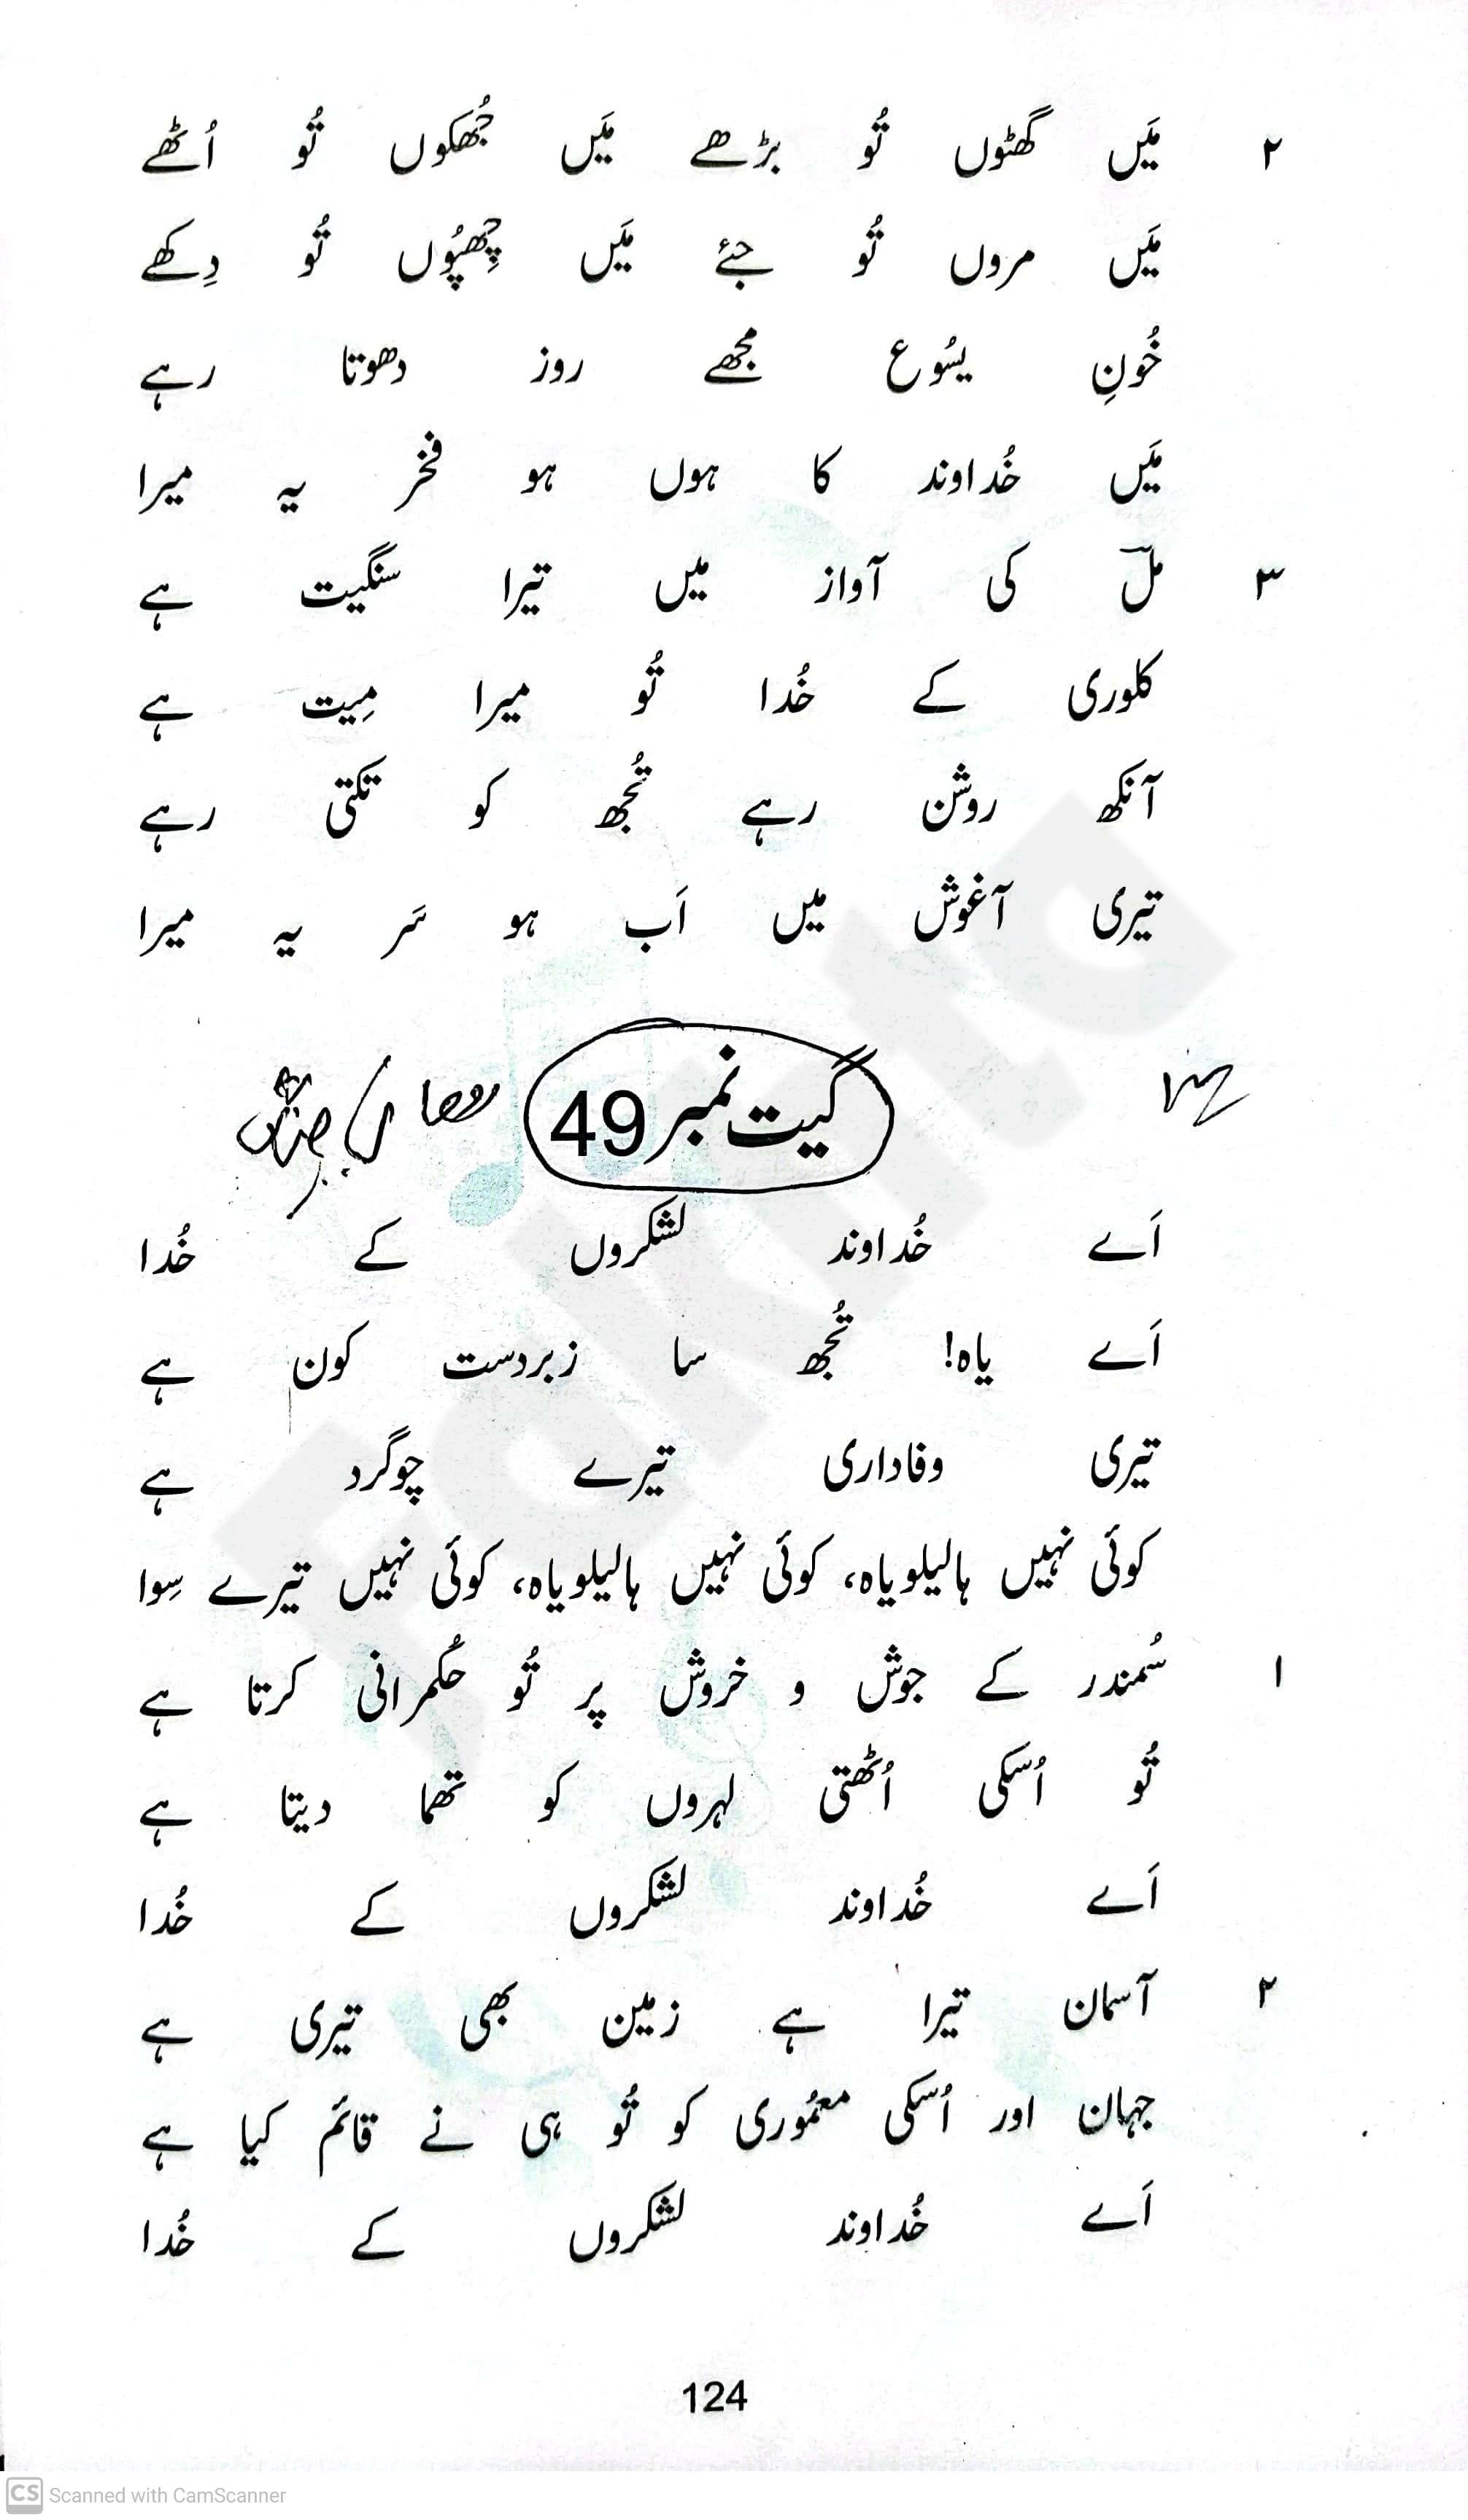 ۲ مَیں گھٹوں تُو بڑھے مَیں جُھکوں تُو اُٹھے
مَیں مروں تُو جئے مَیں چِھپُوں تُو دِکھے
خُونِ یسُوع مجھے روز دھوتا رہے
مَیں خُداوند کا ہوں ہو فخر یہ میرا
۳ ملؔ کی آواز میں تیرا سنگیت ہے
کلوری کے خُدا تُو میرا مِیت ہے
آنکھ روشن رہے تُجھ کو تکتی رہے
تیری آغوش میں اَب ہو سَر یہ میرا
گیت نمبر 49
اَے خُداوند لشکروں کے خُدا
اَے یاہ! تُجھ سا زبردست کون ہے
تیری وفاداری تیرے چوگرد ہے
کوئی نہیں ہالیلویاہ، کوئی نہیں ہالیلویاہ، کوئی نہیں تیرے سِوا
۱ سُمندر کے جوش و خروش پر تُو حُکمرانی کرتا ہے
تُو اُسکی اُٹھتی لہروں کو تھما دیتا ہے
اَے خُداوند لشکروں کے خُدا
۲ آسمان تیرا ہے زمین بھی تیری ہے
جہان اور اُسکی معمُوری کو تُو ہی نے قائم کیا ہے
اَے خُداوند لشکروں کے خُدا
124
CS Scanned with CamScanner